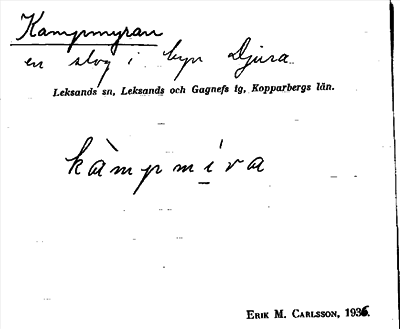 Kampmyran
en slog i byn Djura.
Leksands sn, Leksands och Gagnefs tg, Kopparbergs län.
kàmpmíra
ERIK M. CARLSSON, 1936.